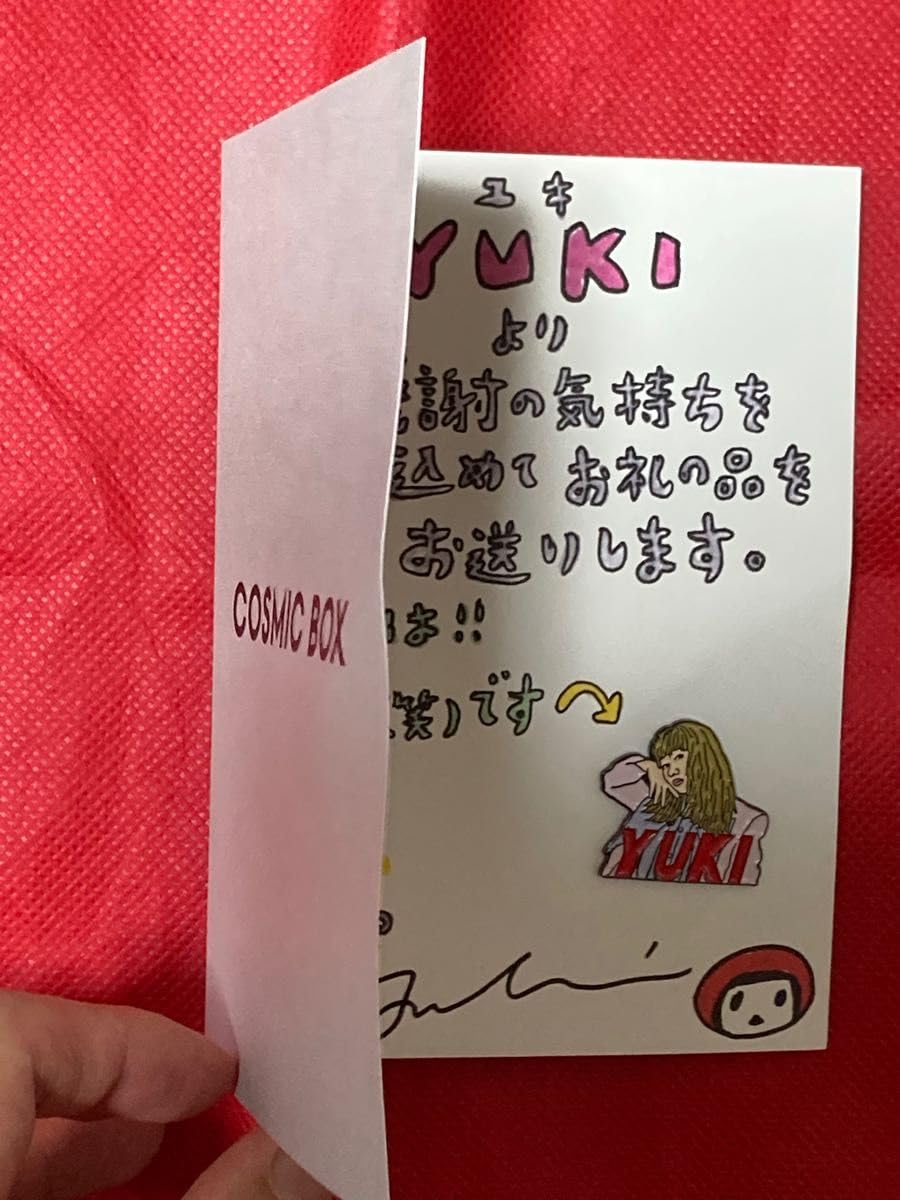 COSMIC BOX
ユキ
YUKI
より
謝の気持ちを
込めて お礼の品を
お送りします。
は!!
笑)です
YUKI